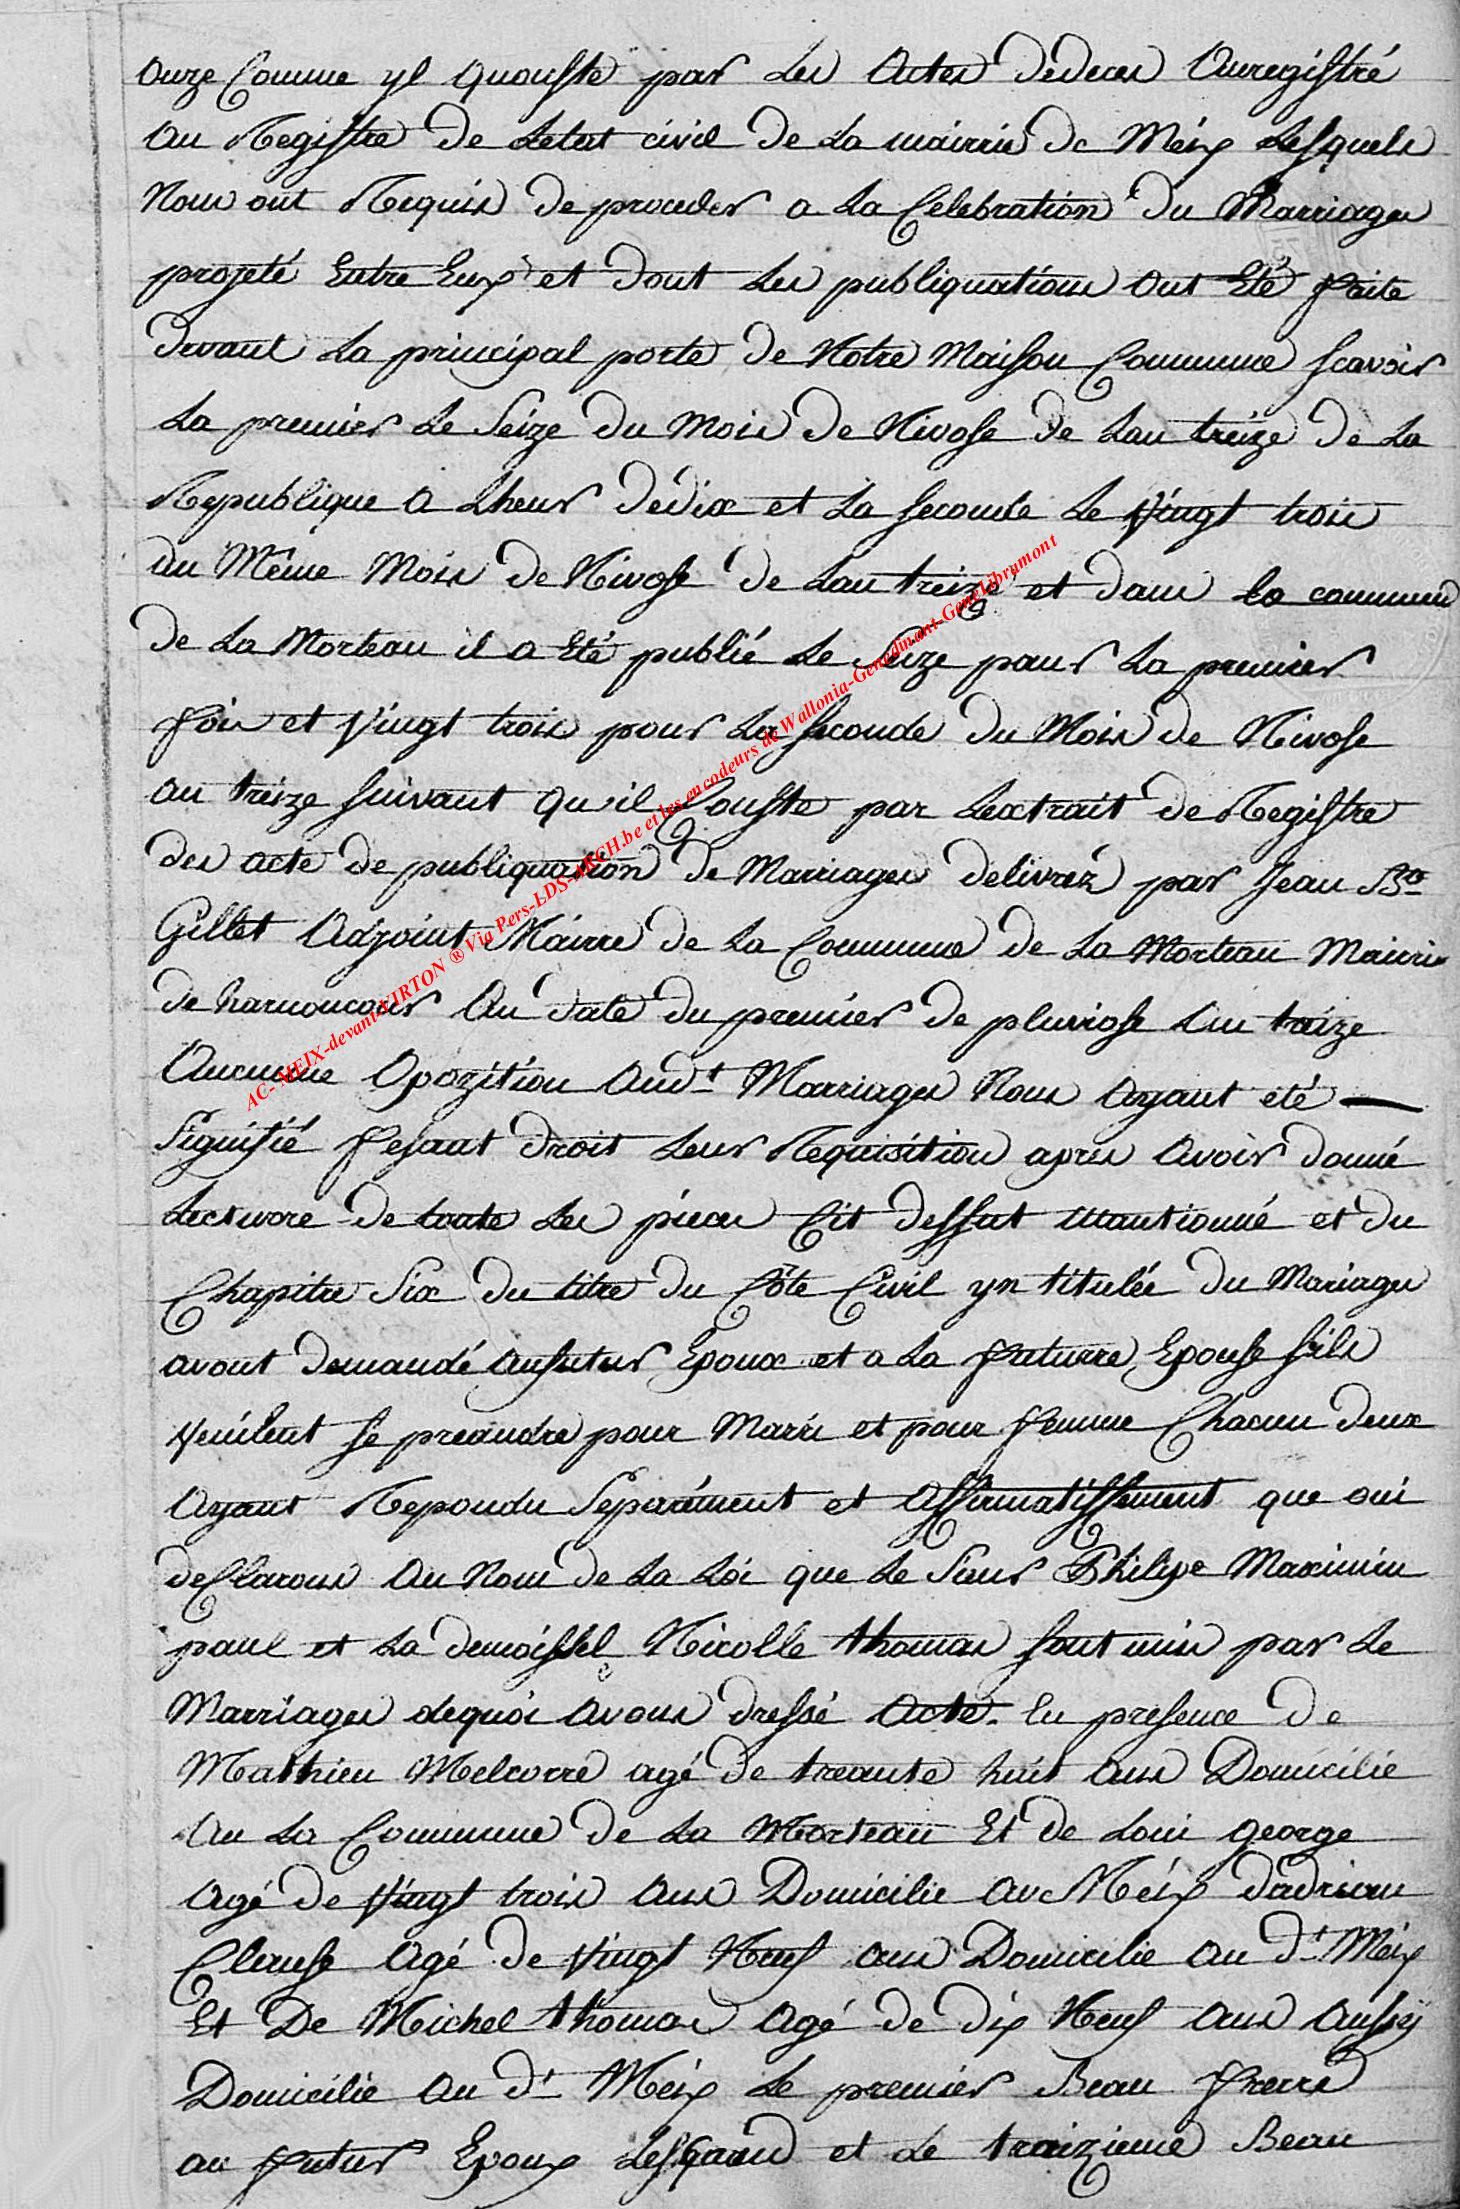 onze Comme yl Quonste par Les Actes dedeces Anregistré
au Registre de Letat civil de La mairrie de Méix Lesquels
Nous ont Requis de proceder a La Celebration du Marriages
projeté Entre Eux et dont Les publiquations ont Eté faite
devant La principal porte de Notre Maison Commune scavoir
La premier Le Seize du Mois de Nivose de Lan treize de La
Republique a Lheur dedix et La seconde Le Vingt trois
du Même Mois de Nivose de Lan treize et dans la commune
de La Morteau il a Eté publié Le Seize pour La premier
fois et Vingt trois pour La seconde du Mois de Nivose
an treize suivant qu'il Conste par Lextrait de Registre
des acte de publiquation de Marriages delivréz par Jean Bte
Gillet Adjoint Mairre de La Commune de La Morteau Mairie
de harnoncour An date du premier de pluviose Lan treize
Aucunne Opozition audt Marriages Nous ayant eté —
Signifié fesant droit Leur Requisition apres avoir donné
Lectuore de toute Les pieces Cit dessut mantionné et du
Chapitre Six du titre du Côte Civil yntitulée du Mariages
avont demandé aufutur Epoux et a La futurre Epouse sils
Veulent se preandre pour Marri et pour femme Chacun deux
ayant Repondu Separément et affirmatissement que oui
deClarons au Nom de La Loi que Le Sieur Philipe Maximin
paul et La demoissel Nicolle thomas sont unis par Le
Marriages dequoi avons dressé acte. En presence de
Mathieu Melcorré agé de treante huit ans Domicilié
An La Commune de La Morteau Et de Loui george
agé de Vingt trois ans Domicilie au Méix dadrian
Clause agé de Vingt Neuf ans Domicilie au dt Méix
Et De Michel thomas agé de dix Neuf ans Aussy
Domicilie au dt Méix Le premier Beau frerre
au futur Epoux et Le traizieme Beau
AC- MEIX-devant-VIRTON ® Via Pers-LDS-ARCH.be et les encodeurs de Wallonia-Genedinant-GeneLibramont